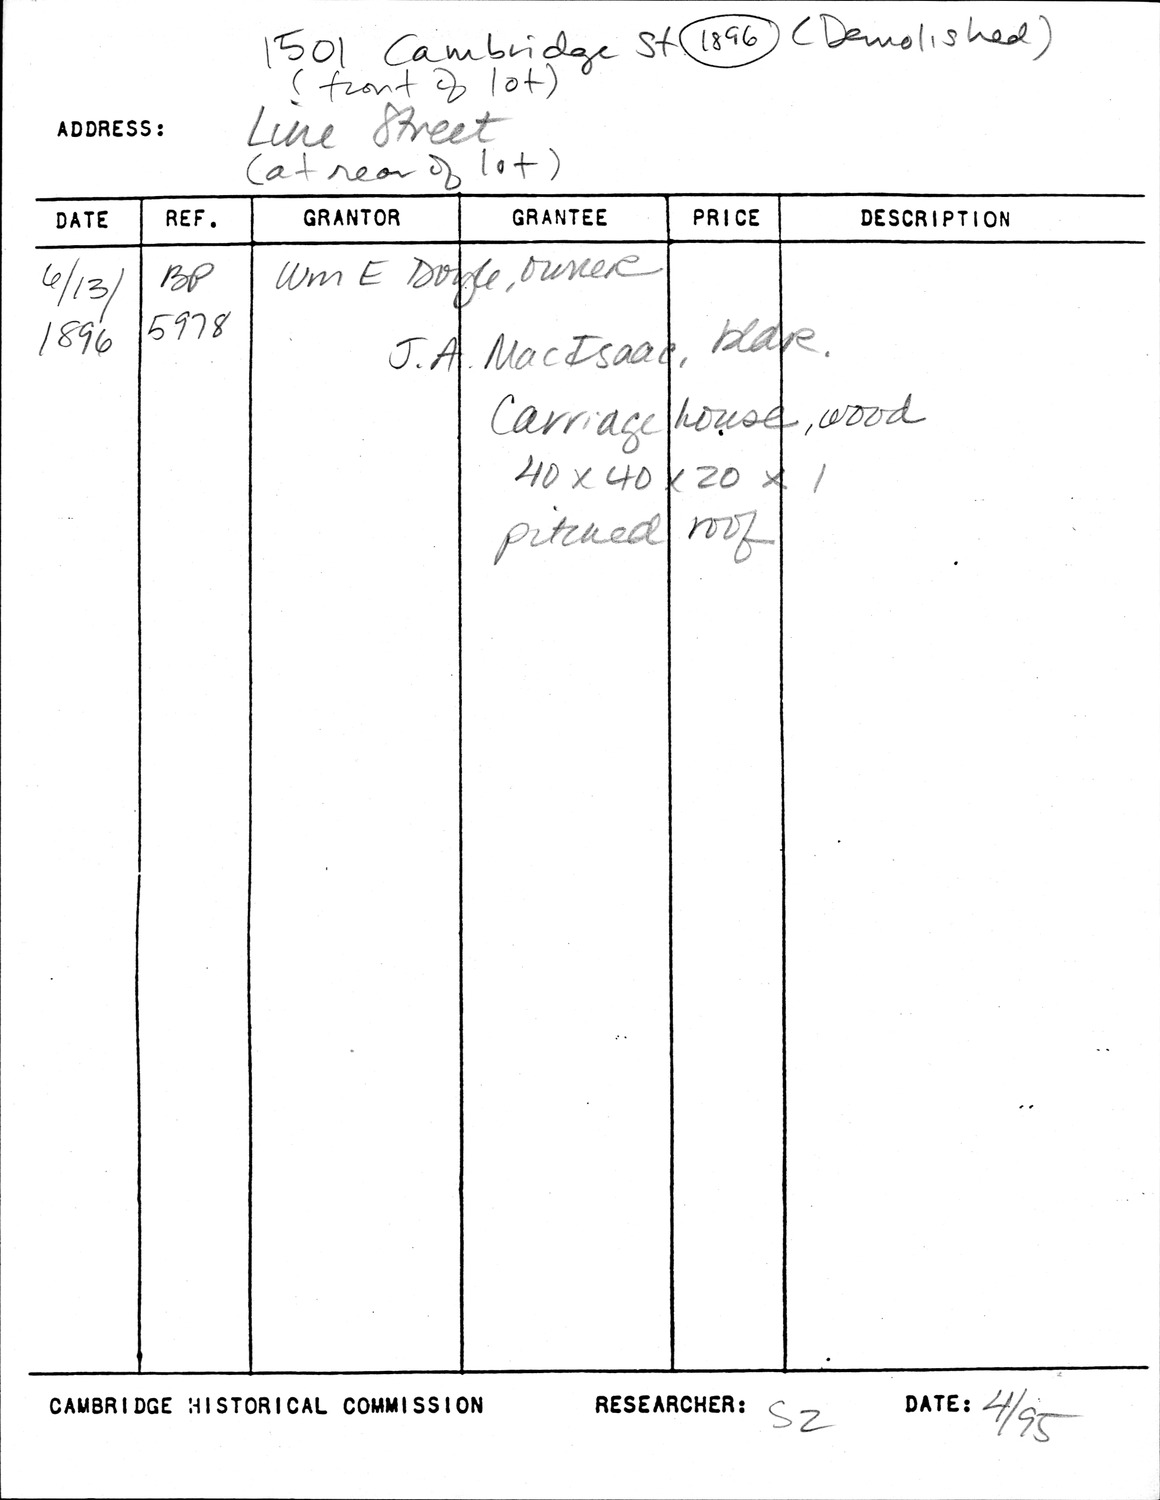 1501 Cambridge St (1896) (Demolished)
(front of lot)
ADDRESS: Line Street
(at rear of lot)
DATE REF. GRANTOR GRANTEE PRICE DESCRIPTION
6/13/ BP Wm E Doyle, owner
1896 5978
J.A. MacIsaac, bldr.
Carriage house, wood
40 x 40 x 20 x 1
pitched roof
CAMBRIDGE HISTORICAL COMMISSION RESEARCHER: SZ DATE: 4/95